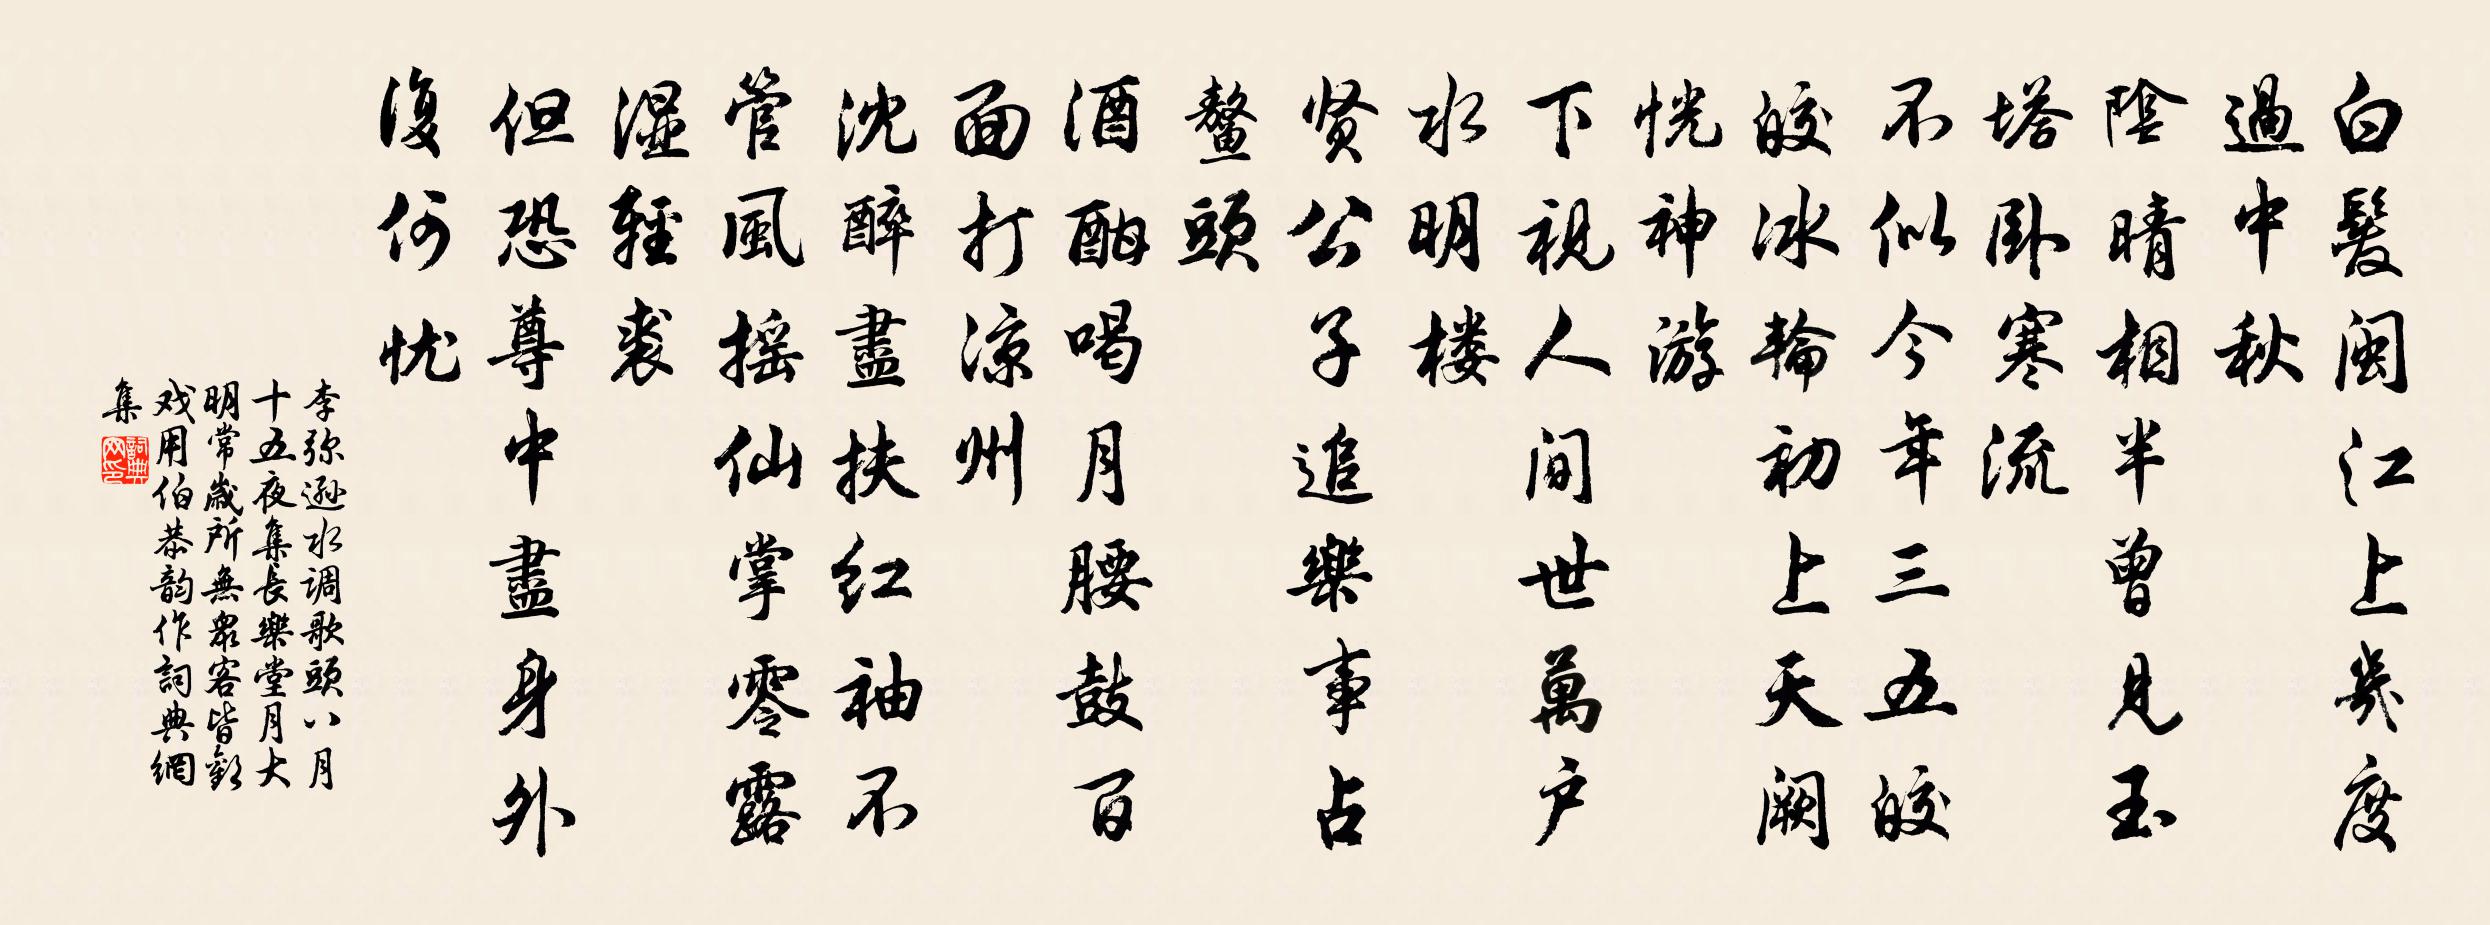 白髮闽江上幾度
過中秋
陰晴相半曾見玉
塔卧寒流
不似今年三五皎
皎冰輪初上天阙
恍神游
下視人间世萬户
水明楼
贤公子追樂事占
鳌頭
酒酣喝月腰鼓百
面打凉州
沈醉盡扶红袖不
管風摇仙掌零露
湿輕裘
但恐尊中盡身外
復何忧
李弥遜水调歌頭八月
十五夜集長樂堂月大
明常歲所無衆客皆歡
戏用伯恭韵作詞典網
集